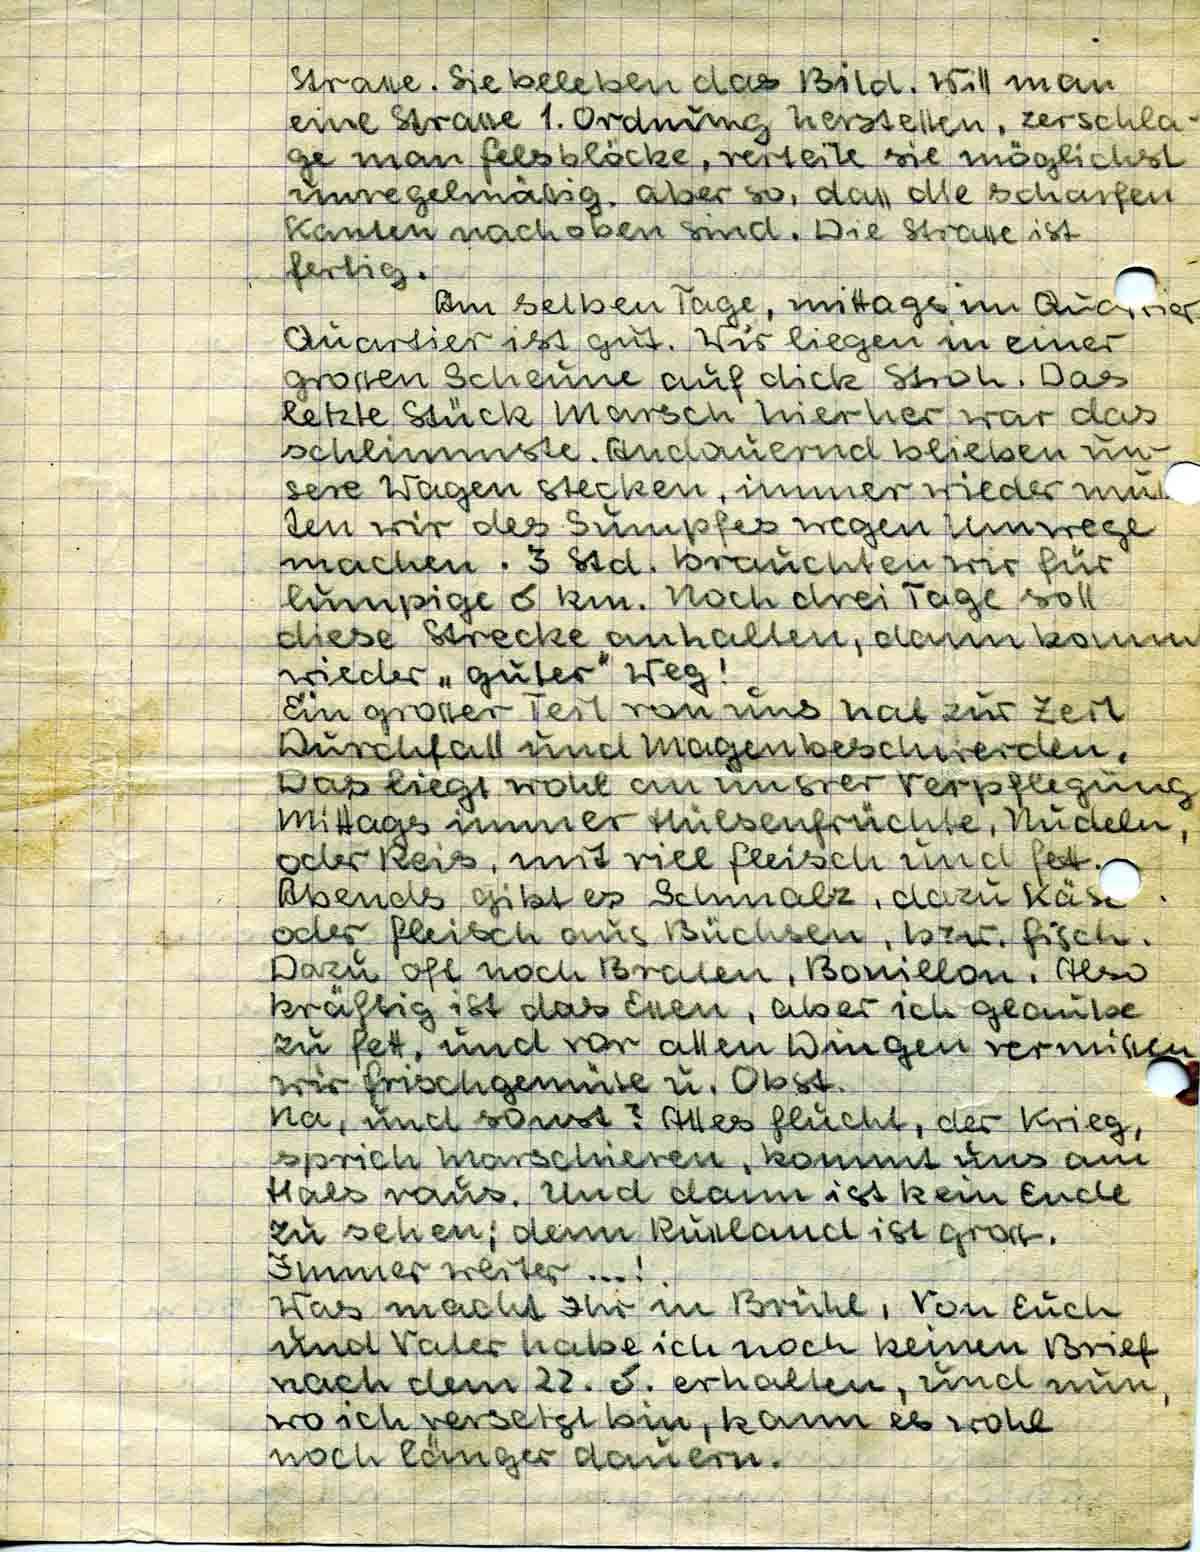 Strasse. Sie beleben das Bild. Will man
eine Strasse 1. Ordnung herstellen, zerschla-
ge man Felsblöcke, verteile sie möglichst
unregelmäßig, aber so, dass die scharfen
Kanten nach oben sind. Die Strasse ist
fertig.
Am selben Tage, mittags im Quartier
Quartier ist gut. Wir liegen in einer
grossen Scheune auf dick Stroh. Das
letzte Stück Marsch hierher war das
schlimmste. Andauernd blieben un-
sere Wagen stecken, immer wieder muß
ten wir des Sumpfes wegen Umwege
machen. 3 Std. brauchten wir für
lumpige 5 km. Noch drei Tage soll
diese Strecke anhalten, dann komm
wieder „guter" Weg!
Ein grosser Teil von uns hat zur Zeit
Durchfall und Magenbeschwerden.
Das liegt wohl an unsrer Verpflegung
Mittags immer Hülsenfrüchte, Nudeln,
oder Reis, mit viel Fleisch und Fett.
Abends gibt es Schmalz, dazu Käse
oder Fleisch aus Büchsen, bzw. Fisch.
Dazu oft noch Braten, Bouillon. Also
kräftig ist das Essen, aber ich glaube
zu fett, und vor allen Dingen vermissen
wir Frischgemüse u. Obst.
Na, und sonst? Alles flucht, der Krieg,
sprich Marschieren, kommt uns am
Hals raus. Und dann ist kein Ende
zu sehen; denn Russland ist gross.
Immer weiter ...!
Was macht Ihr in Brühl, Von Euch
und Vater habe ich noch keinen Brief
nach dem 22. 5. erhalten, und nun,
wo ich versetzt bin, kann es wohl
noch länger dauern.